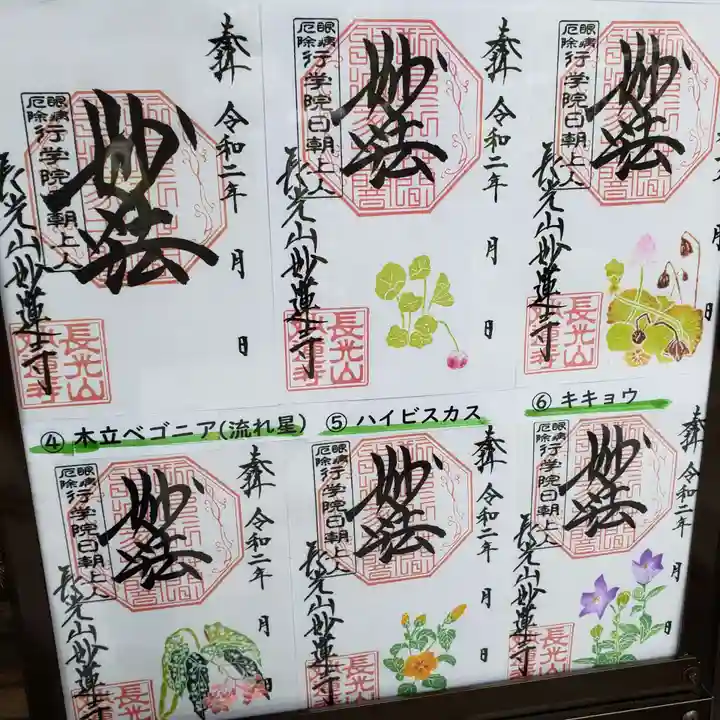 奉拝
令和二年 月 日
眼病
厄除
行学院日朝上人
妙法
長光山妙蓮寺
長光山
妙蓮寺
奉拝
令和二年 月 日
眼病
厄除
行学院日朝上人
妙法
長光山妙蓮寺
長光山
妙蓮寺
奉拝
令和二年 月 日
眼病
厄除
行学院日朝上人
妙法
長光山妙蓮寺
長光山
妙蓮寺
④ 木立ベゴニア(流れ星)
⑤ ハイビスカス
⑥ キキョウ
奉拝
令和二年 月 日
眼病
厄除
行学院日朝上人
妙法
長光山妙蓮寺
長光山
妙蓮寺
奉拝
令和二年 月 日
眼病
厄除
行学院日朝上人
妙法
長光山妙蓮寺
長光山
妙蓮寺
奉拝
令和二年 月 日
眼病
厄除
行学院日朝上人
妙法
長光山妙蓮寺
長光山
妙蓮寺